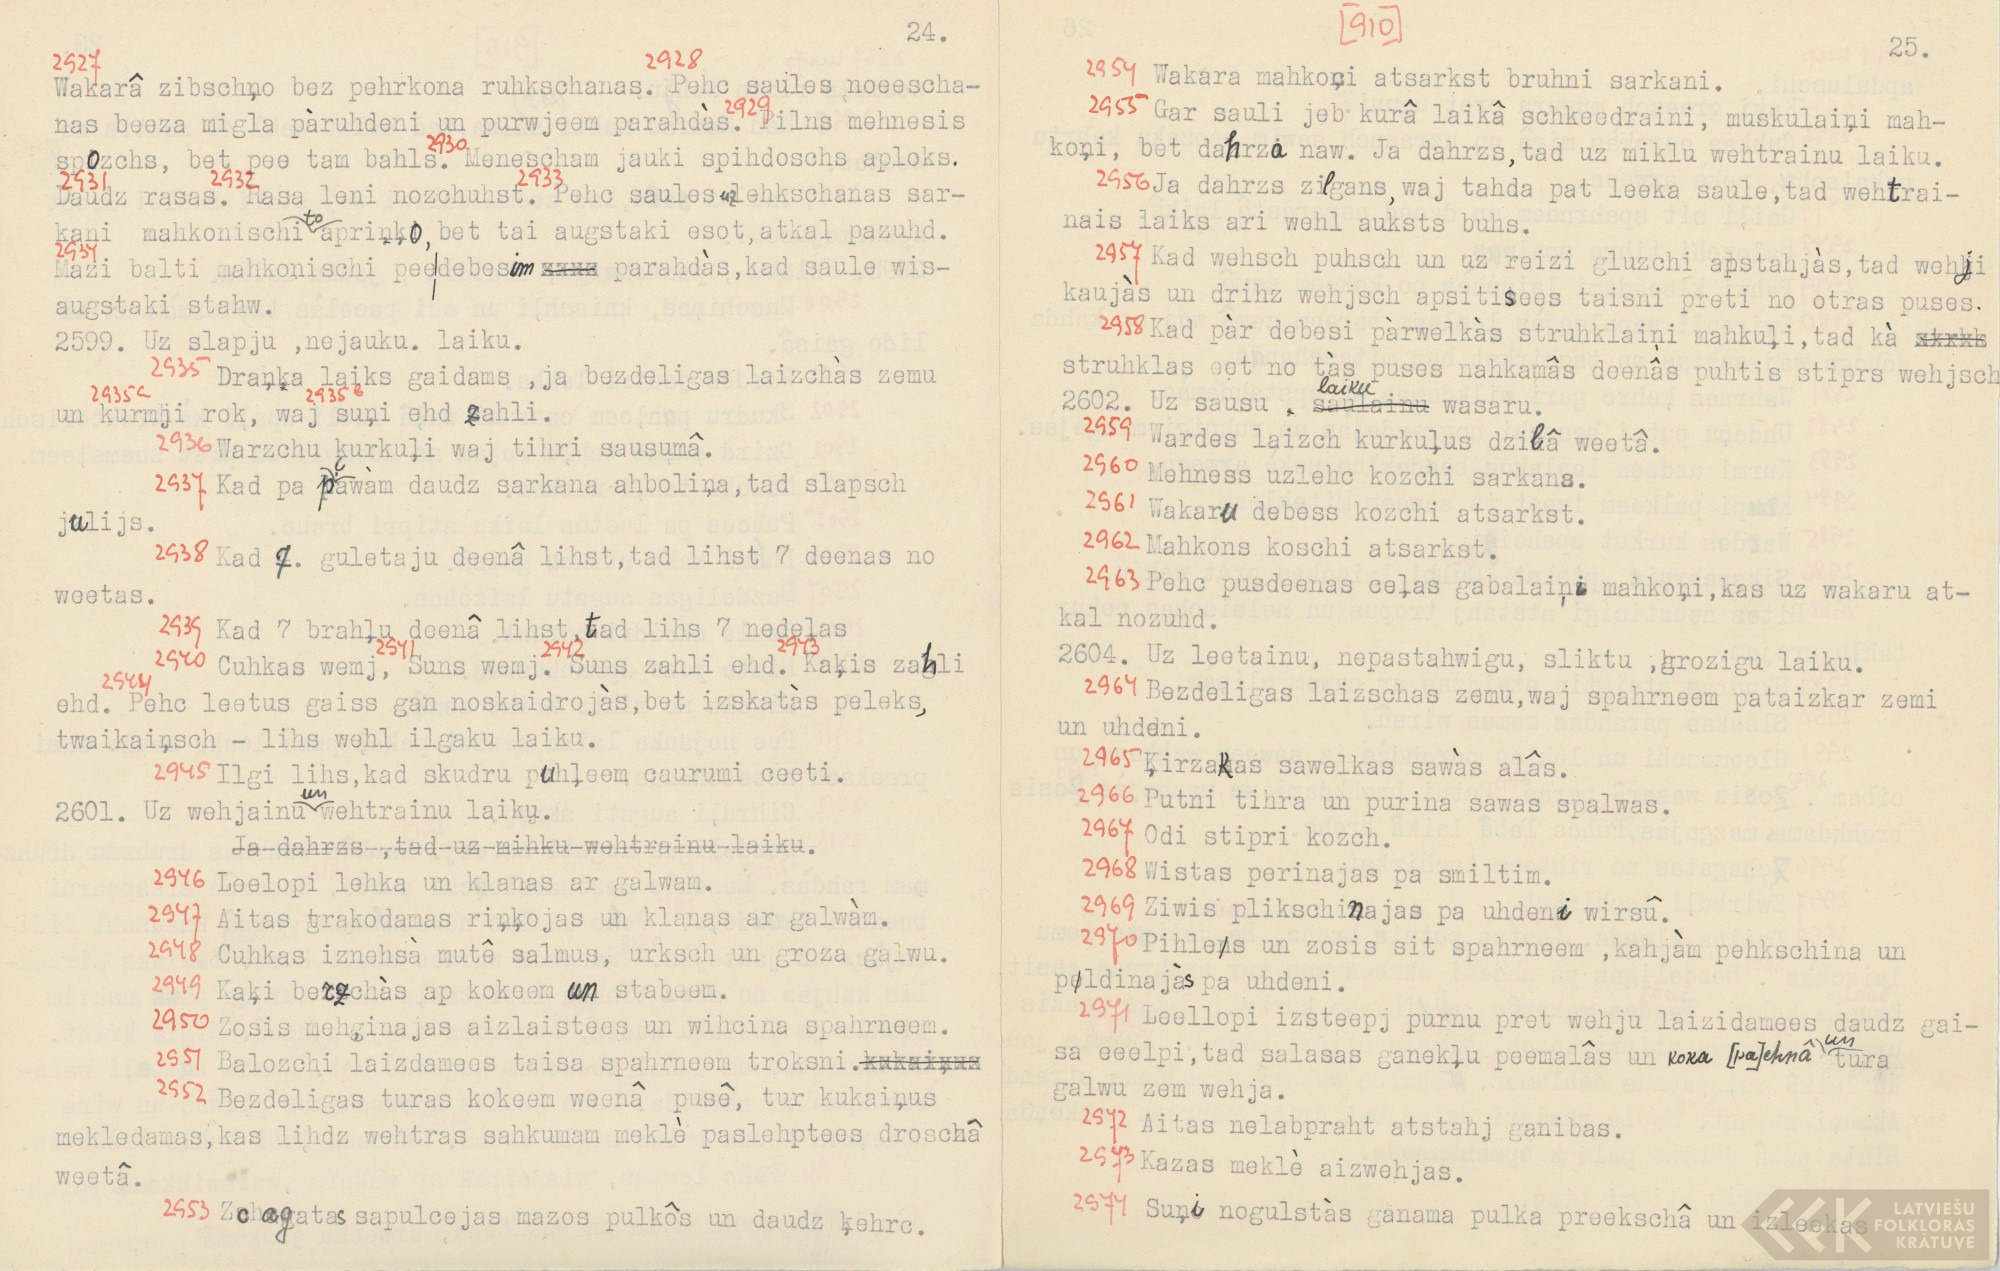 24.
2927 2928
Wakarâ zibschņo bez pehrkona ruhkschanas. Pehc saules noeescha-
2929
nas beeza migla pàruhdeni un purwjeem parahdàs. Pilns mehnesis
2930
spozchs, bet pee tam bahls. Menescham jauki spihdoschs aploks.
2931 2932 2933
Daudz rasas. Rasa leni nozchuhst. Pehc saules uzlehkschanas sar-
to
kani mahkonischi apriņķo, bet tai augstaki esot,atkal pazuhd.
2934
Mazi balti mahkoņischi pee debesim xxxx parahdàs,kad saule wis-
augstaki stahw.
2599. Uz slapju ,nejauku. laiku.
2935 Draņķa laiks gaidams ,ja bezdeligas laizchàs zemu
2935a 2935b
un kurmji rok, waj suņi ehd zahli.
2936 Warzchu kurkuļi waj tihri sausumâ.
2937 Kad pa pļawàm daudz sarkana ahboliņa,tad slapsch
julijs.
2938 Kad 7. guletaju deenâ lihst,tad lihst 7 deenas no
weetas.
2939 Kad 7 brahļu deenâ lihst,tad lihs 7 nedeļas
2940 2941 2942 2943
Cuhkas wemj, Suns wemj. Suns zahli ehd. Kaķis zahli
2944
ehd. Pehc leetus gaiss gan noskaidrojàs,bet izskatàs peleks,
twaikaiņsch – lihs wehl ilgaku laiku.
2945 Ilgi lihs,kad skudru puhļeem caurumi ceeti.
un
2601. Uz wehjainu wehtrainu laiku.
Ja dahrzs ,tad uz mihku wehtrainu laiku.
2946 Leelopi lehka un klanas ar galwam.
2947 Aitas trakodamas riņķojas un klanas ar galwàm.
2948 Cuhkas iznehsà mutê salmus, urksch un groza galwu.
2949 Kaķi berzchàs ap kokeem un stabeem.
2950 Zosis mehģinajas aizlaistees un wihcina spahrneem.
2951 Balozchi laizdamees taisa spahrneem troksni. kukaiņus
2952 Bezdeligas turas kokeem weenâ pusê, tur kukaiņus
mekledamas,kas lihdz wehtras sahkumam meklè paslehptees droschâ
weetâ.
2953 Zchagatas sapulcejas mazos pulkôs un daudz ķehrc.
[910]
25.
2954 Wakara mahkoņi atsarkst bruhni sarkani.
2955 Gar sauli jeb kurâ laikâ schkeedraini, muskulaiņi mah-
koņi, bet dahrza naw. Ja dahrzs,tad uz miklu wehtrainu laiku.
2956 Ja dahrzs zilgans,waj tahda pat leeka saule,tad wehtrai-
nais laiks ari wehl auksts buhs.
2957 Kad wehsch puhsch un uz reizi gluzchi apstahjàs,tad wehji
kaujàs un drihz wehjsch apsitisees taisni preti no otras puses.
2958 Kad pàr debesi pàrwelkàs struhklaiņi mahkuļi,tad kà xtrkk
struhklas eet no tàs puses nahkamâs deenâs puhtis stiprs wehjsch
laiku
2602. Uz sausu , saulainu wasaru.
2959 Wardes laizch kurkuļus dziļâ weetâ.
2960 Mehness uzlehc kozchi sarkans.
2961 Wakaru debess kozchi atsarkst.
2962 Mahkons koschi atsarkst.
2963 Pehc pusdeenas ceļas gabalaiņi mahkoņi,kas uz wakaru at-
kal nozuhd.
2604. Uz leetainu, nepastahwigu, sliktu ,grozigu laiku.
2964 Bezdeligas laizschas zemu,waj spahrneem pataizkar zemi
un uhdeni.
2965 Ķirzakas sawelkas sawàs alâs.
2966 Putni tihra un purina sawas spalwas.
2967 Odi stipri kozch.
2968 Wistas perinajas pa smiltim.
2969 Ziwis plikschinajas pa uhdeni wirsû.
2970 Pihles un zosis sit spahrneem ,kahjàm pehkschina un
peldinajàs pa uhdeni.
2971 Leellopi izsteepj purnu pret wehju laizidamees daudz gai-
un
sa eeelpi,tad salasas ganekļu peemalâs un koka [pa]ehnâ tura
galwu zem wehja.
2972 Aitas nelabpraht atstahj ganibas.
2973 Kazas meklè aizwehjas.
2974 Suņi nogulstàs ganama pulka preekschâ un izleekas
LATVIEŠU
FOLKLORAS
KRĀTUVE